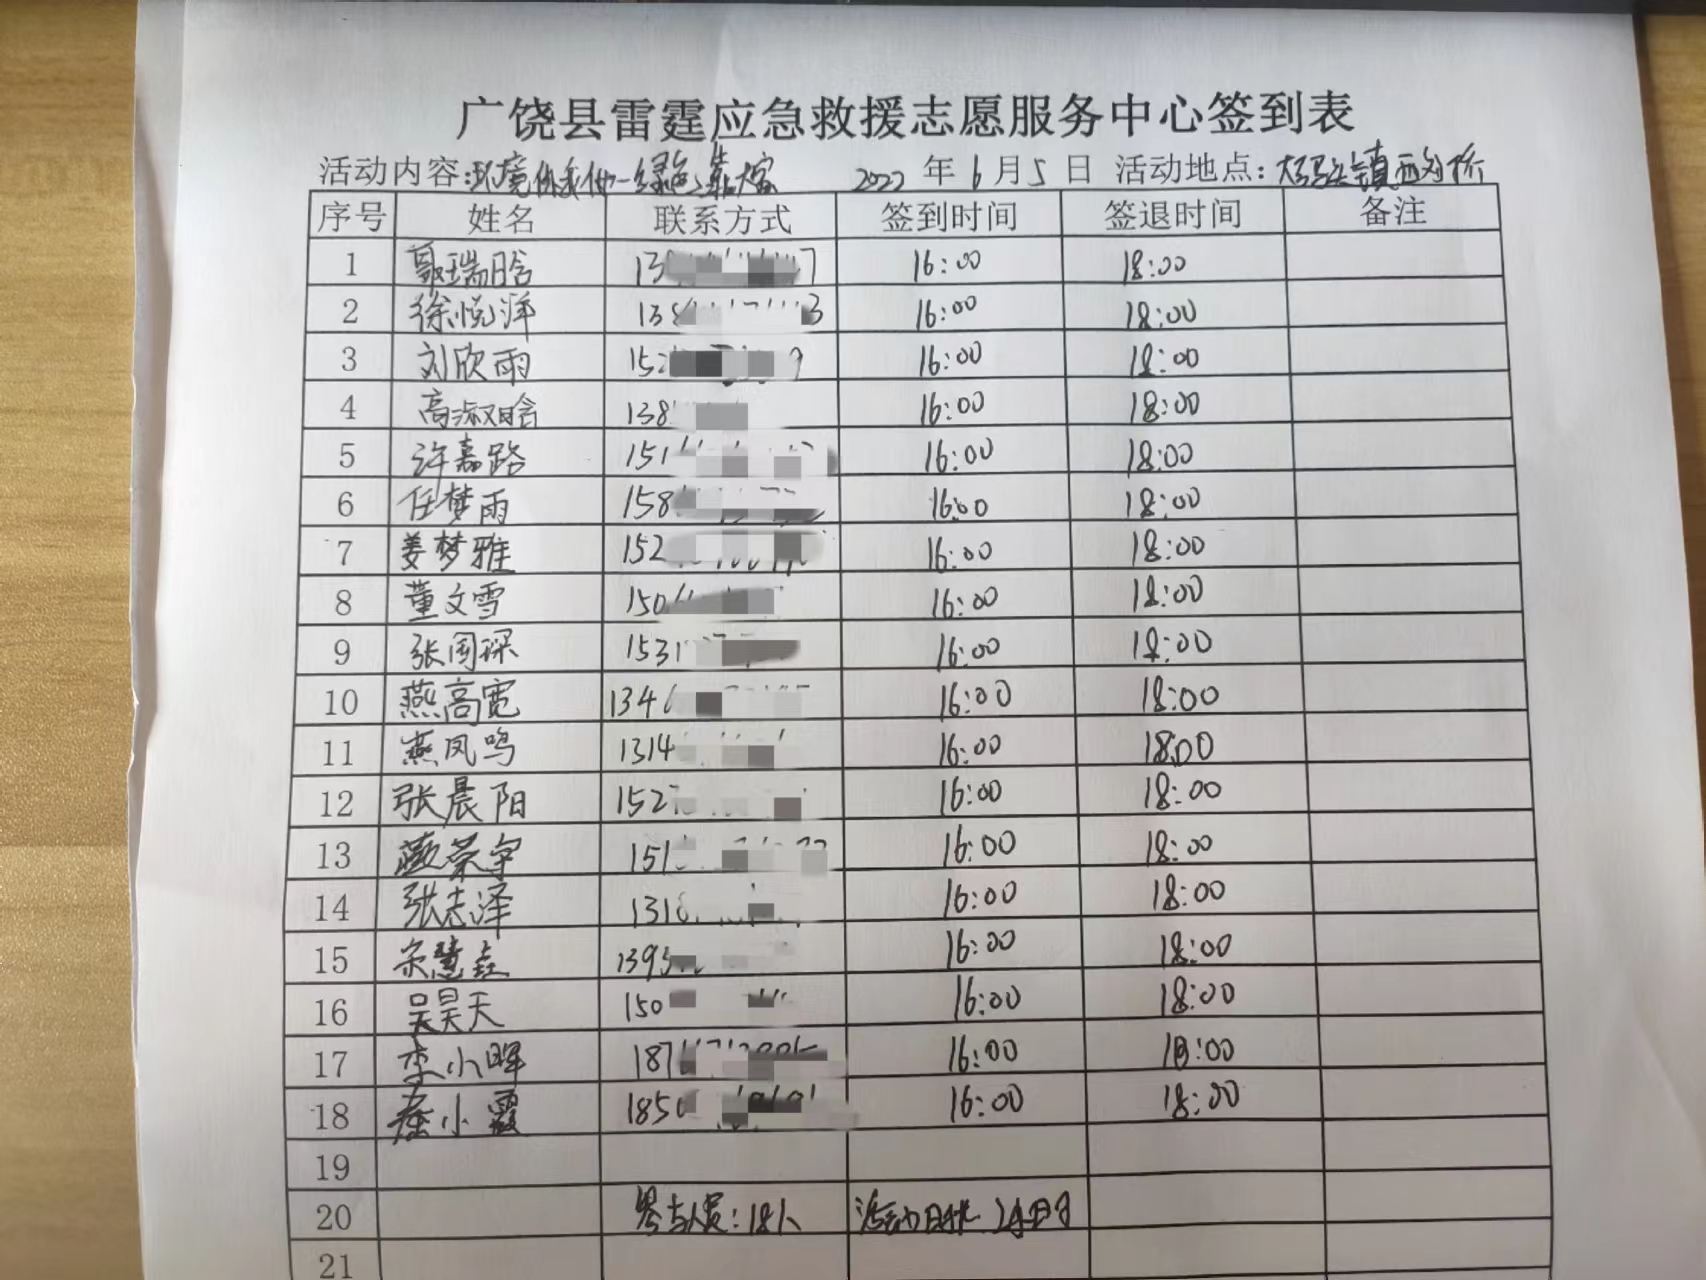 广饶县雷霆应急救援志愿服务中心签到表
活动内容:环境你我他一绿色靠大家 2022 年 6 月 5 日 活动地点:大码头镇西刘桥
序号 姓名 联系方式 签到时间 签退时间 备注
1 郭瑞晗 13 7 16:00 18:00
2 徐悦洋 138 3 16:00 18:00
3 刘欣雨 152 9 16:00 18:00
4 高淑晗 138 16:00 18:00
5 许嘉路 151 16:00 18:00
6 任梦雨 158 16:00 18:00
7 姜梦雅 152 16:00 18:00
8 董文雪 150 16:00 18:00
9 张国琛 1531 16:00 18:00
10 燕高宽 134 16:00 18:00
11 燕凤鸣 1314 16:00 18:00
12 张晨阳 152 16:00 18:00
13 荣宇 151 16:00 18:00
14 张志泽 131 16:00 18:00
15 慧 1393 16:00 18:00
16 吴昊天 150 16:00 18:00
17 李小晖 187 16:00 18:00
18 小霞 185 16:00 18:00
19
20 参与人员:18人 活动时长 2小时
21